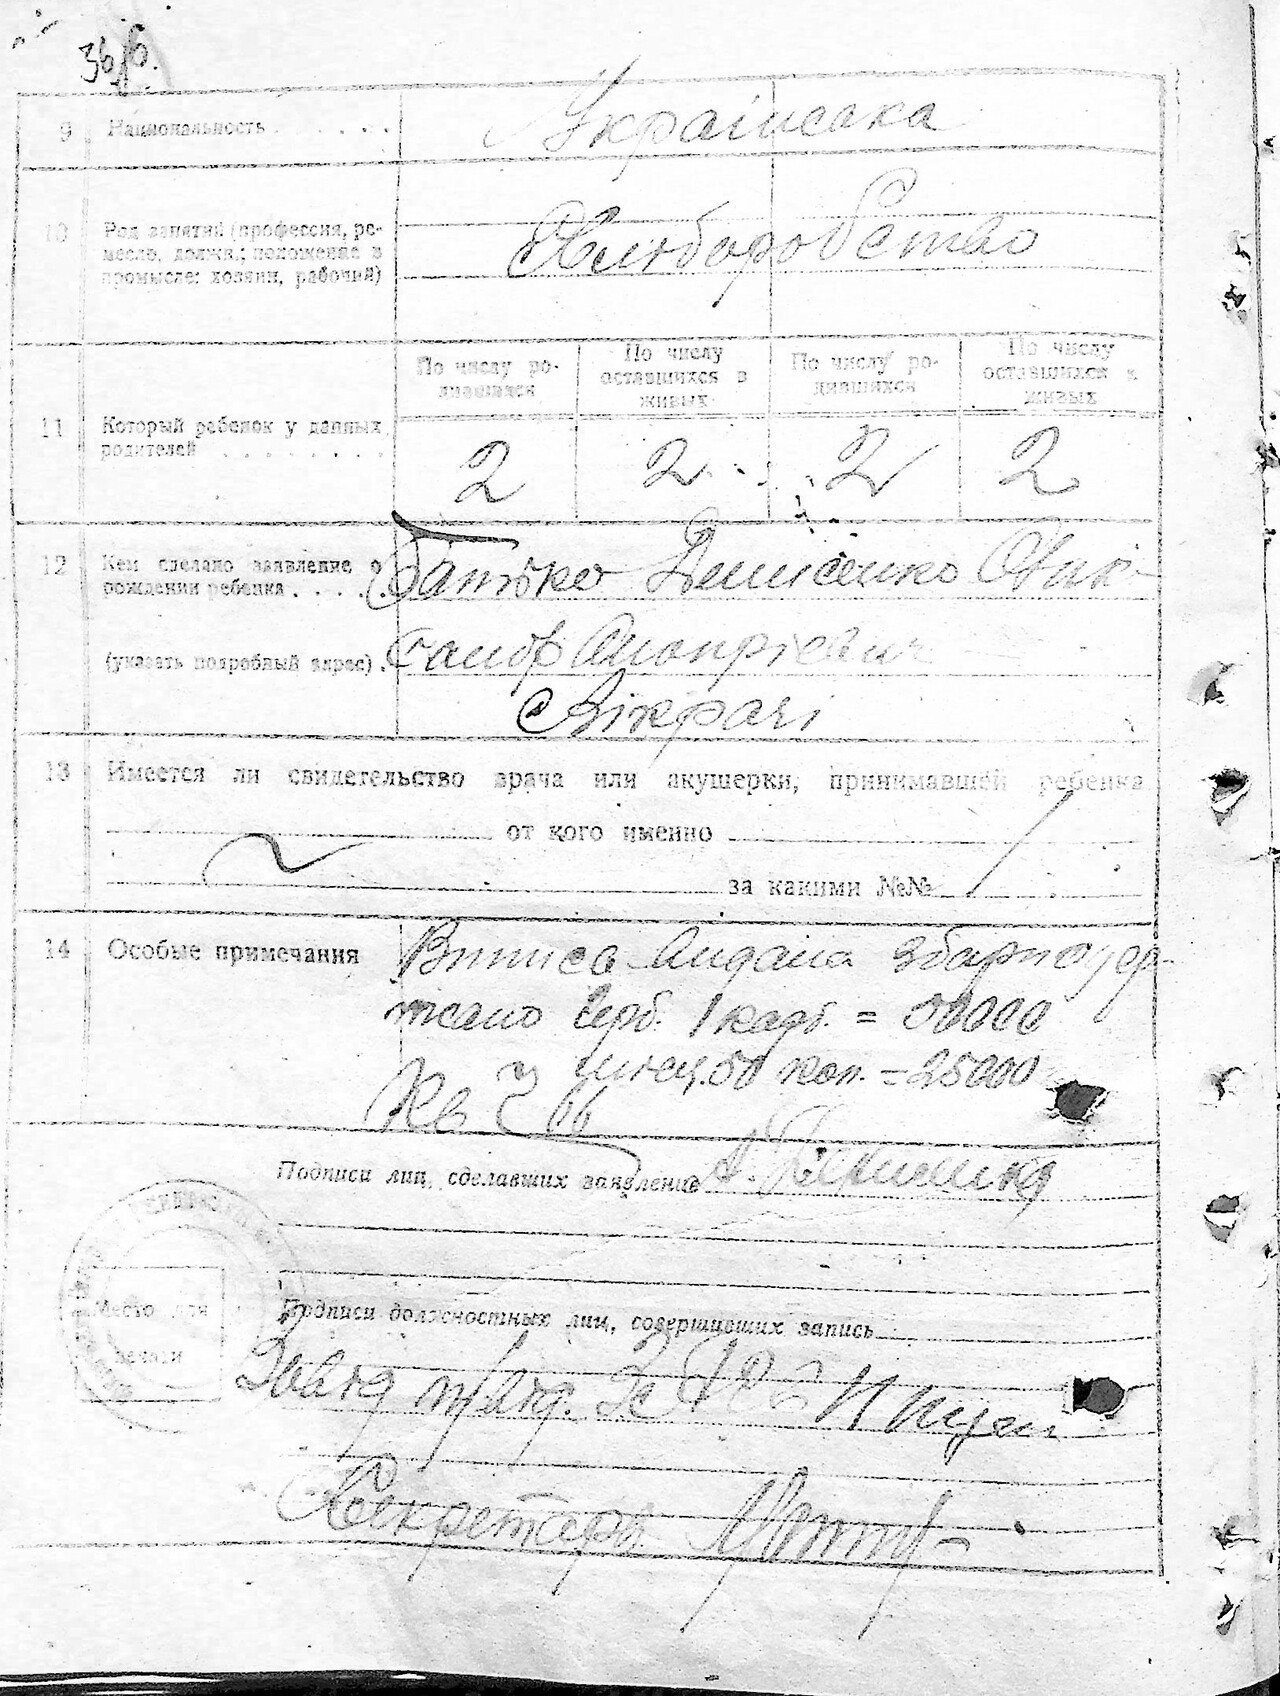 36
9 Национальность . . . . . .
Українська
10 Род занятий (профессия, ре-
месло, должн.; положение в
промысле: хозяин, рабочий)
Хліборобство
По числу ро-
дившихся
По числу
оставшихся в
живых
По числу ро-
дившихся
По числу
оставшихся в
живых
11 Который ребенок у данных
родителей . . . . . . . .
2 2 2 2
12 Кем сделано заявление о
рождении ребенка . . . . .
(указать подробный адрес) .
Батько Денисенко Олек-
сандр Онопрієвич
с Вікрачі
13 Имеется ли свидетельство врача или акушерки, принимавшей ребенка
от кого именно
за какими №№
14 Особые примечания
Випись видана збору
1 = 50000
50 коп. = 25000
Кв
Подписи лиц, сделавших заявление А.
Место для
печати
Подписи должностных лиц, совершивших запись
Секретарь